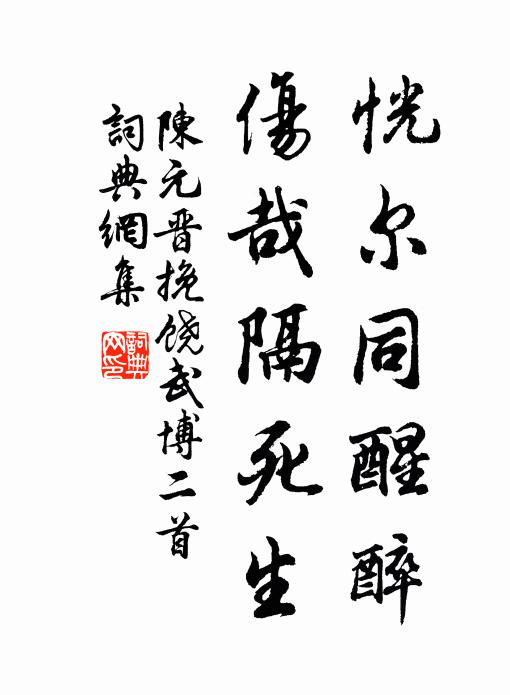 恍尔同醒醉
傷哉隔死生
陳元晋挽饶武博二首
詞典網集
詞典
网印